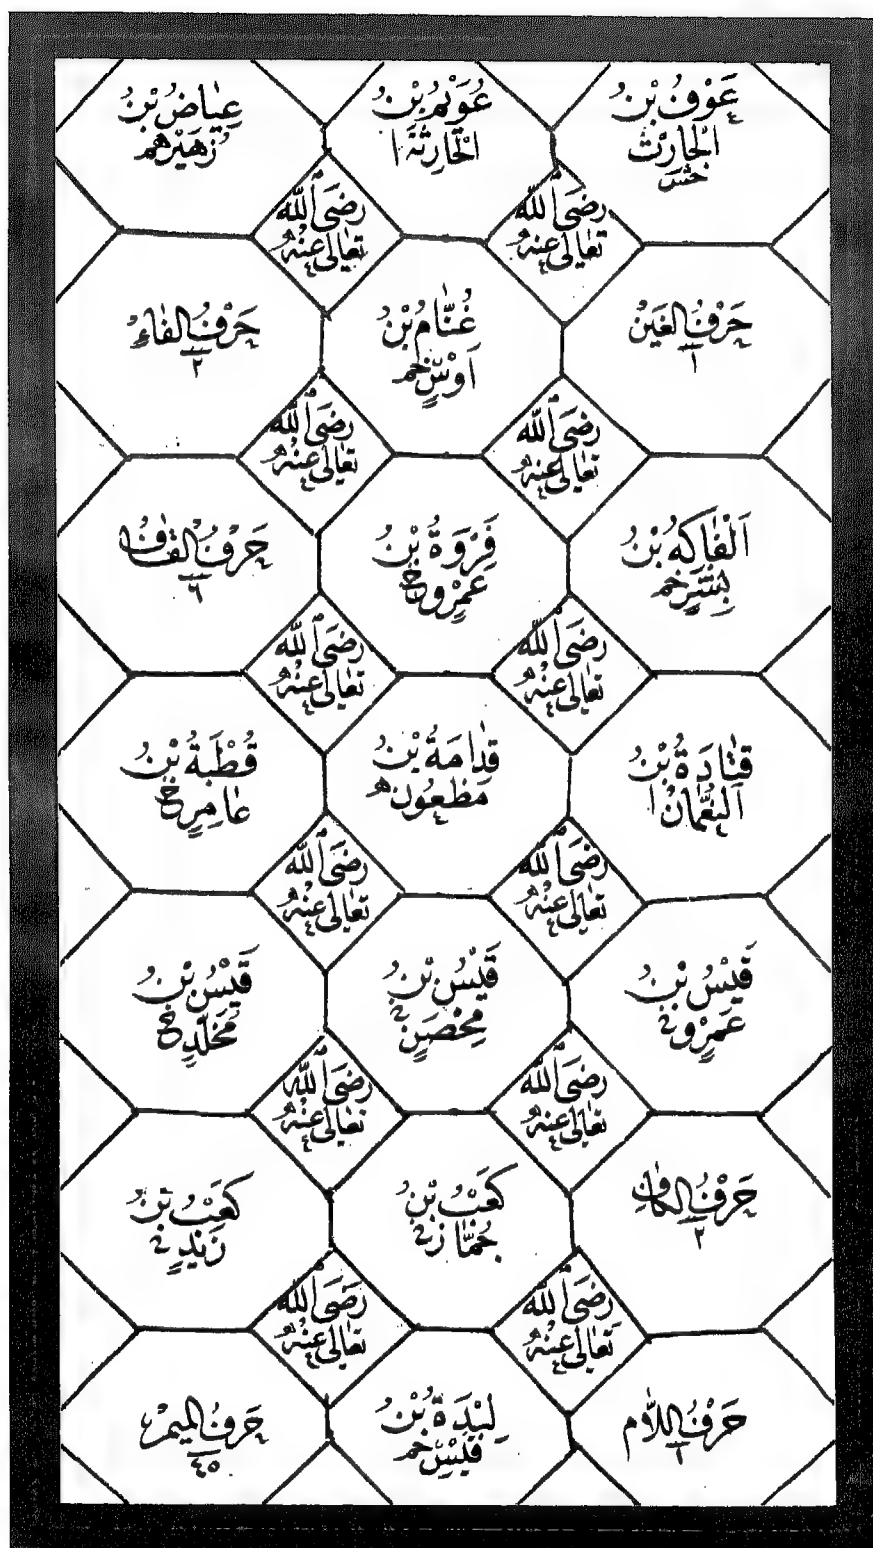 عَوْفُ بْنُ
الْحَارِثْ
خس
عُوَيْمُ بْنُ
الْحَارِثَة ا
عِيَاضُ بْنُ
زُهَيْرٍ هم
رَضِىَ اللّٰه
تَعَالٰى عَنْهُ
رَضِىَ اللّٰه
تَعَالٰى عَنْهُ
حَرْفُ الغَيَنْ
١
غُنَّامُ بْنُ
اَوْسٍ خم
حَرْفُ الفَاءُ
٢
رَضِىَ اللّٰه
تَعَالٰى عَنْهُ
رَضِىَ اللّٰه
تَعَالٰى عَنْهُ
اَلْفَاكَهُ بْنُ
بِشْرٍ خم
فَرْوَةُ بْنُ
عَمْرٍو خ
حَرْفُ القَافُ
٦
رَضِىَ اللّٰه
تَعَالٰى عَنْهُ
رَضِىَ اللّٰه
تَعَالٰى عَنْهُ
قَتَادَةُ بْنُ
النُعْمَانْ ا
قُدَامَةُ بْنُ
مَظعُون ه
قُطْبَةُ بْنُ
عَامِرٍ خ
رَضِىَ اللّٰه
تَعَالٰى عَنْهُ
رَضِىَ اللّٰه
تَعَالٰى عَنْهُ
قَيْسُ بْنُ
عَمْرٍو
قَيْسُ بْنُ
مِحْصَنٍ
قَيْسُ بْنُ
مَخلَدٍ خ
رَضِىَ اللّٰه
تَعَالٰى عَنْهُ
رَضِىَ اللّٰه
تَعَالٰى عَنْهُ
حَرْفُ الكَاف
٢
كَعَبُ بْنُ
جُمَّاز
كَعَبُ بْنُ
زَيْدٍ
رَضِىَ اللّٰه
تَعَالٰى عَنْهُ
رَضِىَ اللّٰه
تَعَالٰى عَنْهُ
حَرْفُ اللَّام
١
لِبْدَةُ بْنُ
قَيْسْ خم
حَرفُ الميمْ
٤٥